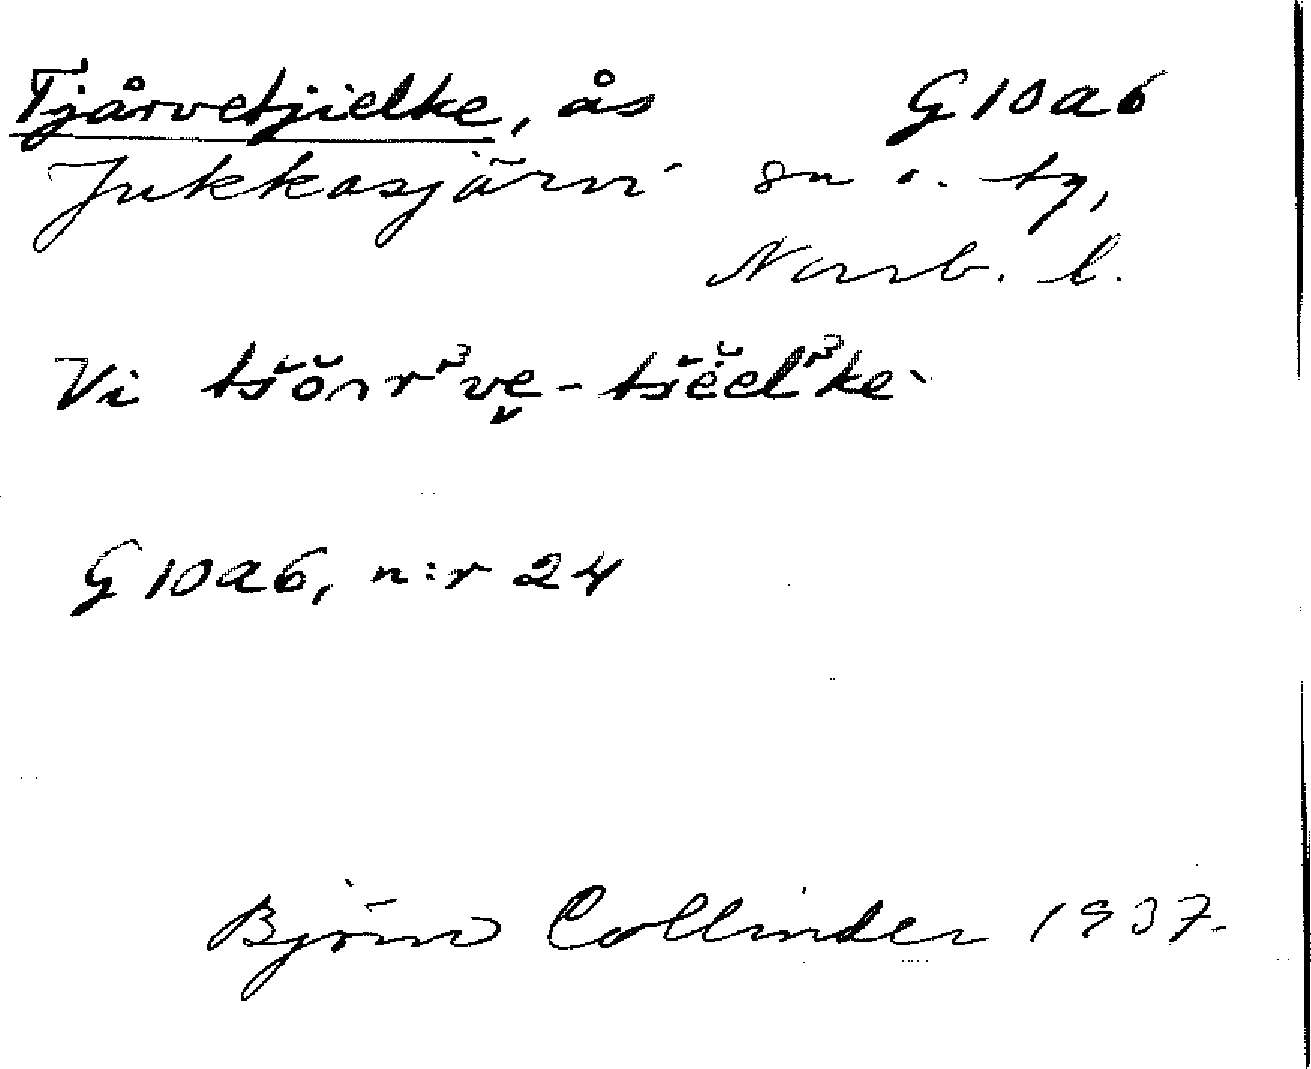 Tjårvetjielke, ås G10a6
Jukkasjärvi sn o. tg,
Norrb. l.
Vi tšŏrr³ve̬-tšĕel³ke
G10a6, n:r 24
Björn Collinder 1937.